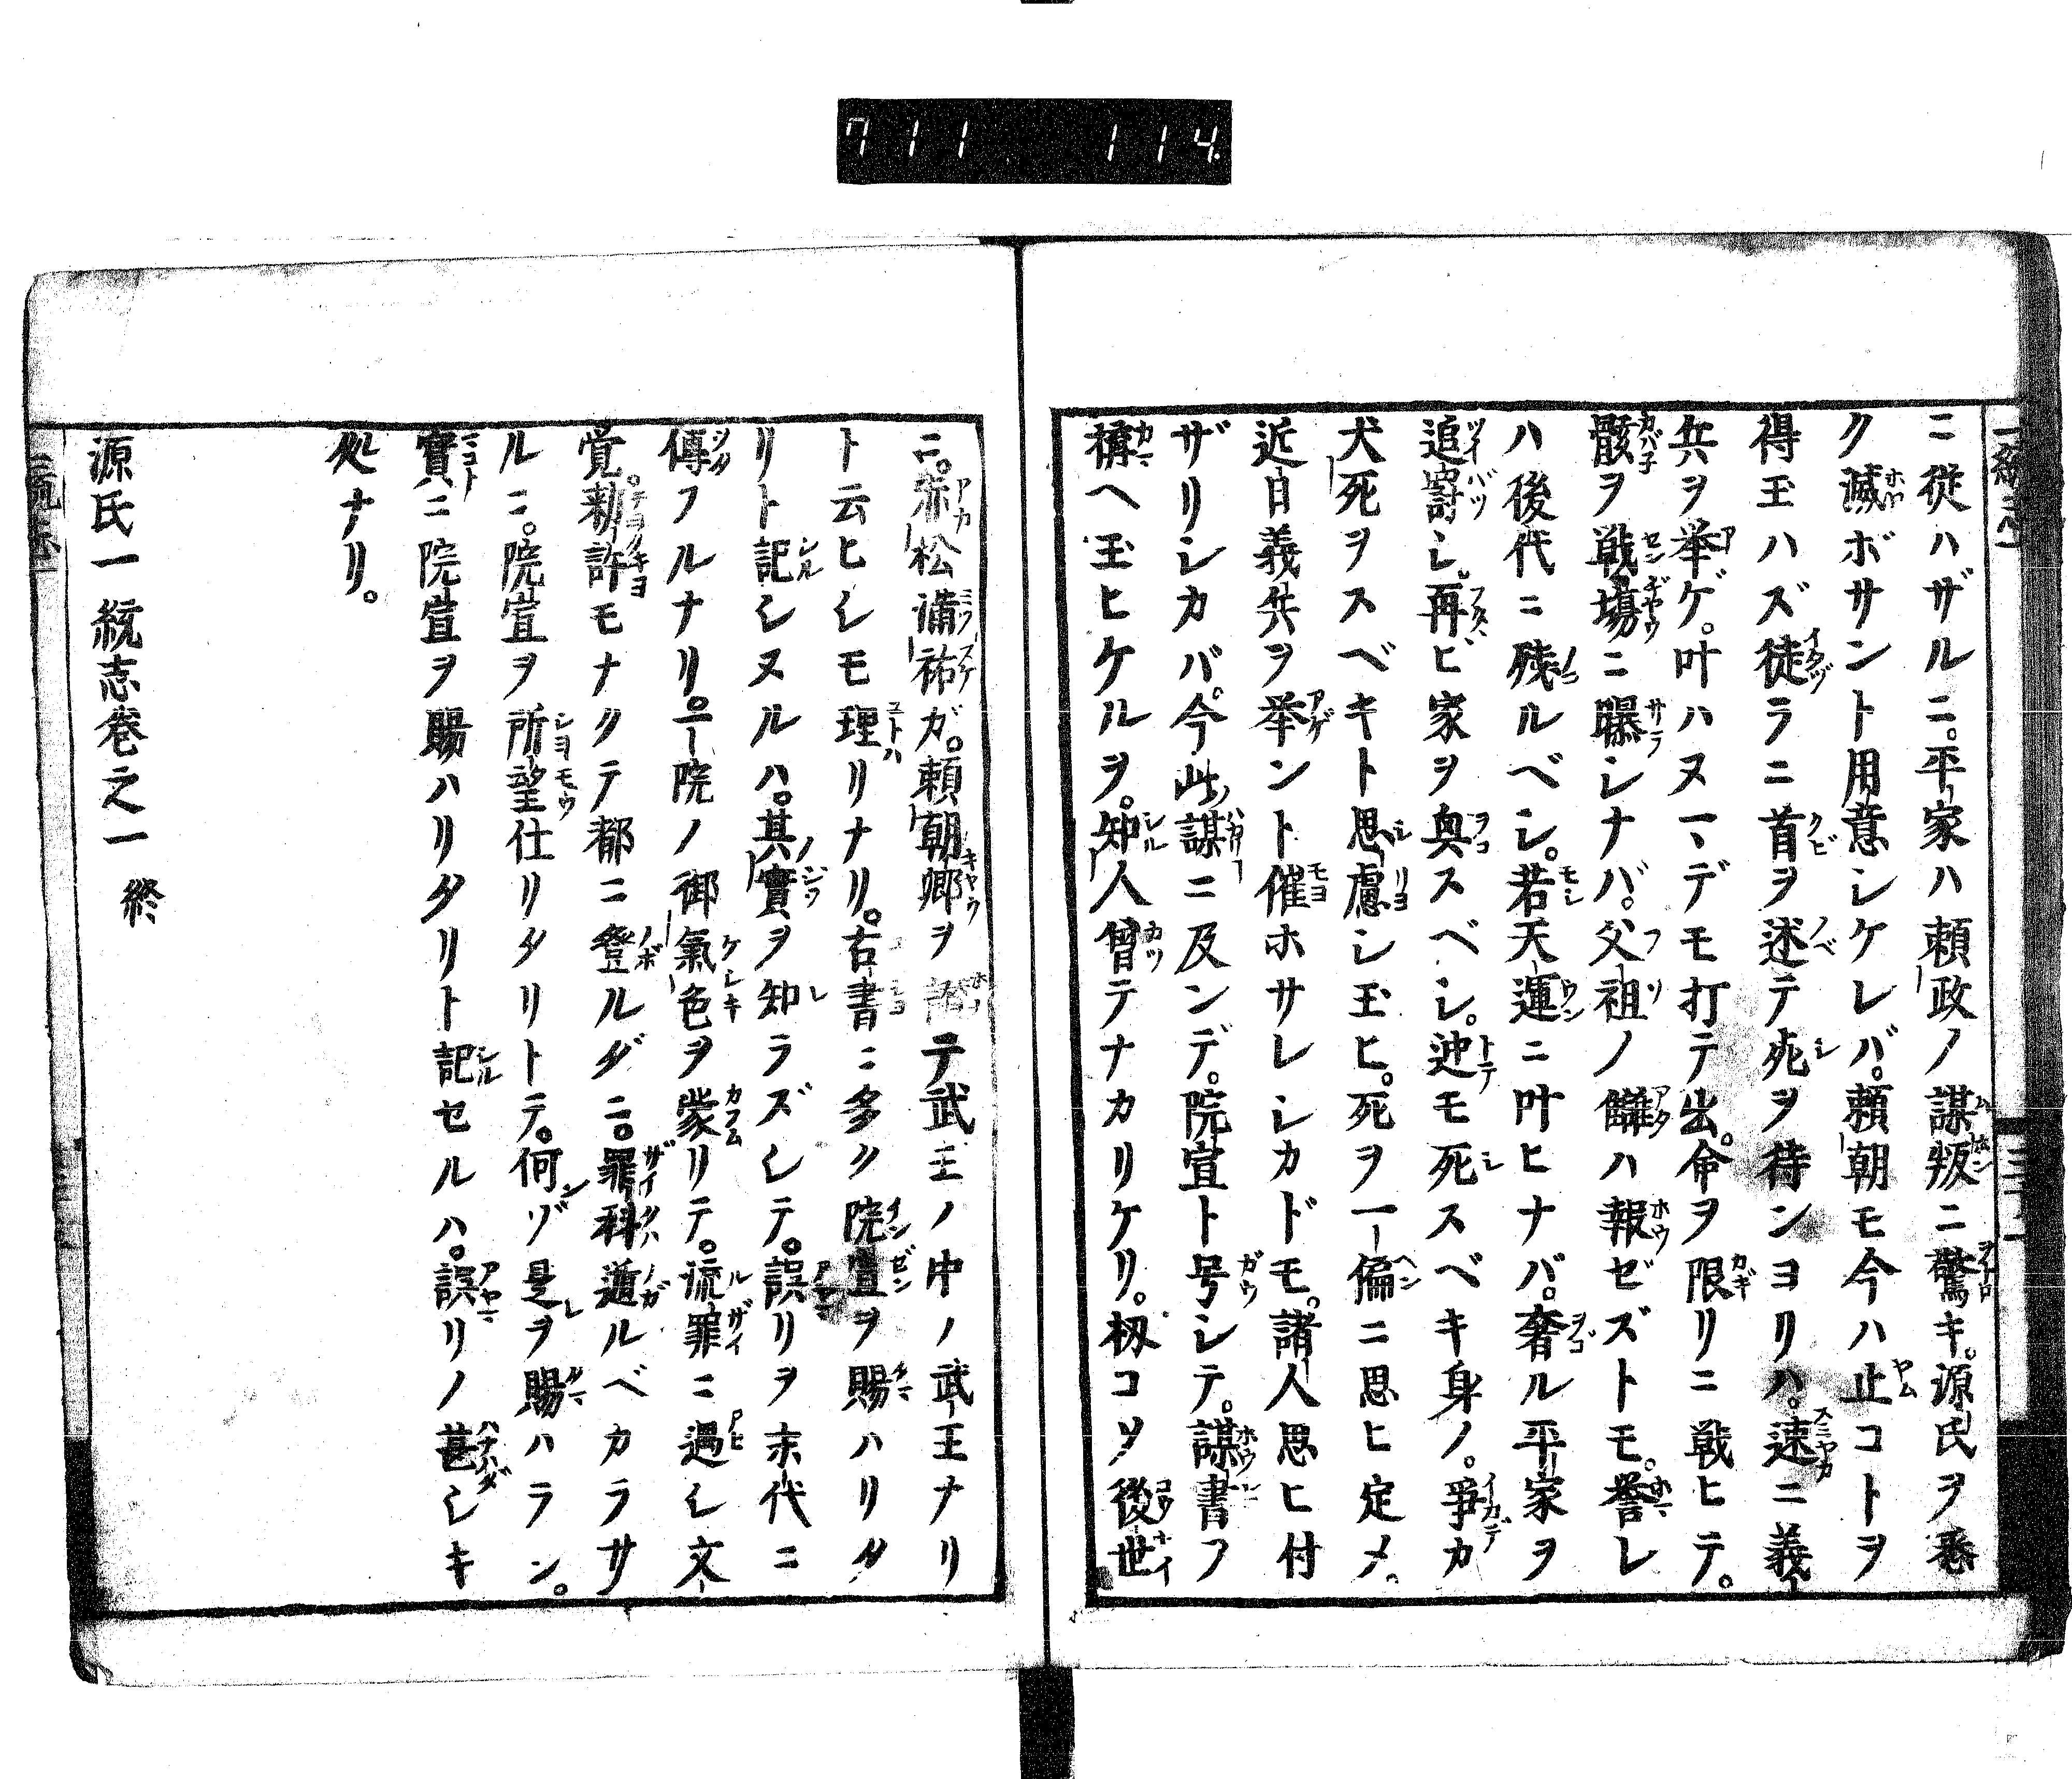 711 114
ニ従ハザルニ。平家ハ頼政ノ謀叛ニ驚キ。源氏ヲ悉
ク滅ボサント用意シケレバ。頼朝モ今ハ止コトヲ
得玉ハズ徒ラニ首ヲ述テ死ヲ待ンヨリハ。速ニ義
兵ヲ挙ゲ。叶ハヌ一マデモ打テ出。命ヲ限リニ戦ヒテ。
骸ヲ戦場ニ曝シナバ。父祖ノ讎ハ報ゼズトモ。誉レ
ハ後代ニ残ルベシ。若天運ニ叶ヒナバ。奢ル平家ヲ
追罸シ。再ビ家ヲ興スベシ。迚モ死スベキ身ノ。爭カ
犬死ヲスベキト思慮シ玉ヒ。死ヲ一偏ニ思ヒ定メ。
近日義兵ヲ挙ント催ホサレシカドモ。諸人思ヒ付
ザリシカバ。今此謀ニ及ンデ。院宣ト号シテ。謀書ヲ
構ヘ玉ヒケルヲ。知人曾テナカリケリ。扨コソ後世
ニ。赤松満祐ガ。頼朝卿ヲ誉テ武王ノ中ノ武王ナリ
ト云ヒシモ理リナリ。古書ニ多ク院宣ヲ賜ハリタ
リト記シヌルハ。其實ヲ知ラズシテ。誤リヲ末代ニ
傳フルナリ。一院ノ御氣色ヲ蒙リテ。流罪ニ遇シ文
覚。勅許モナクテ都ニ登ルダニ。罪科遁ルベカラサ
ルニ。院宣ヲ所望仕リタリトテ。何ゾ是ヲ賜ハラン。
實ニ院宣ヲ賜ハリタリト記セルハ。誤リノ甚シキ
処ナリ。
源氏一統志巻之一 終